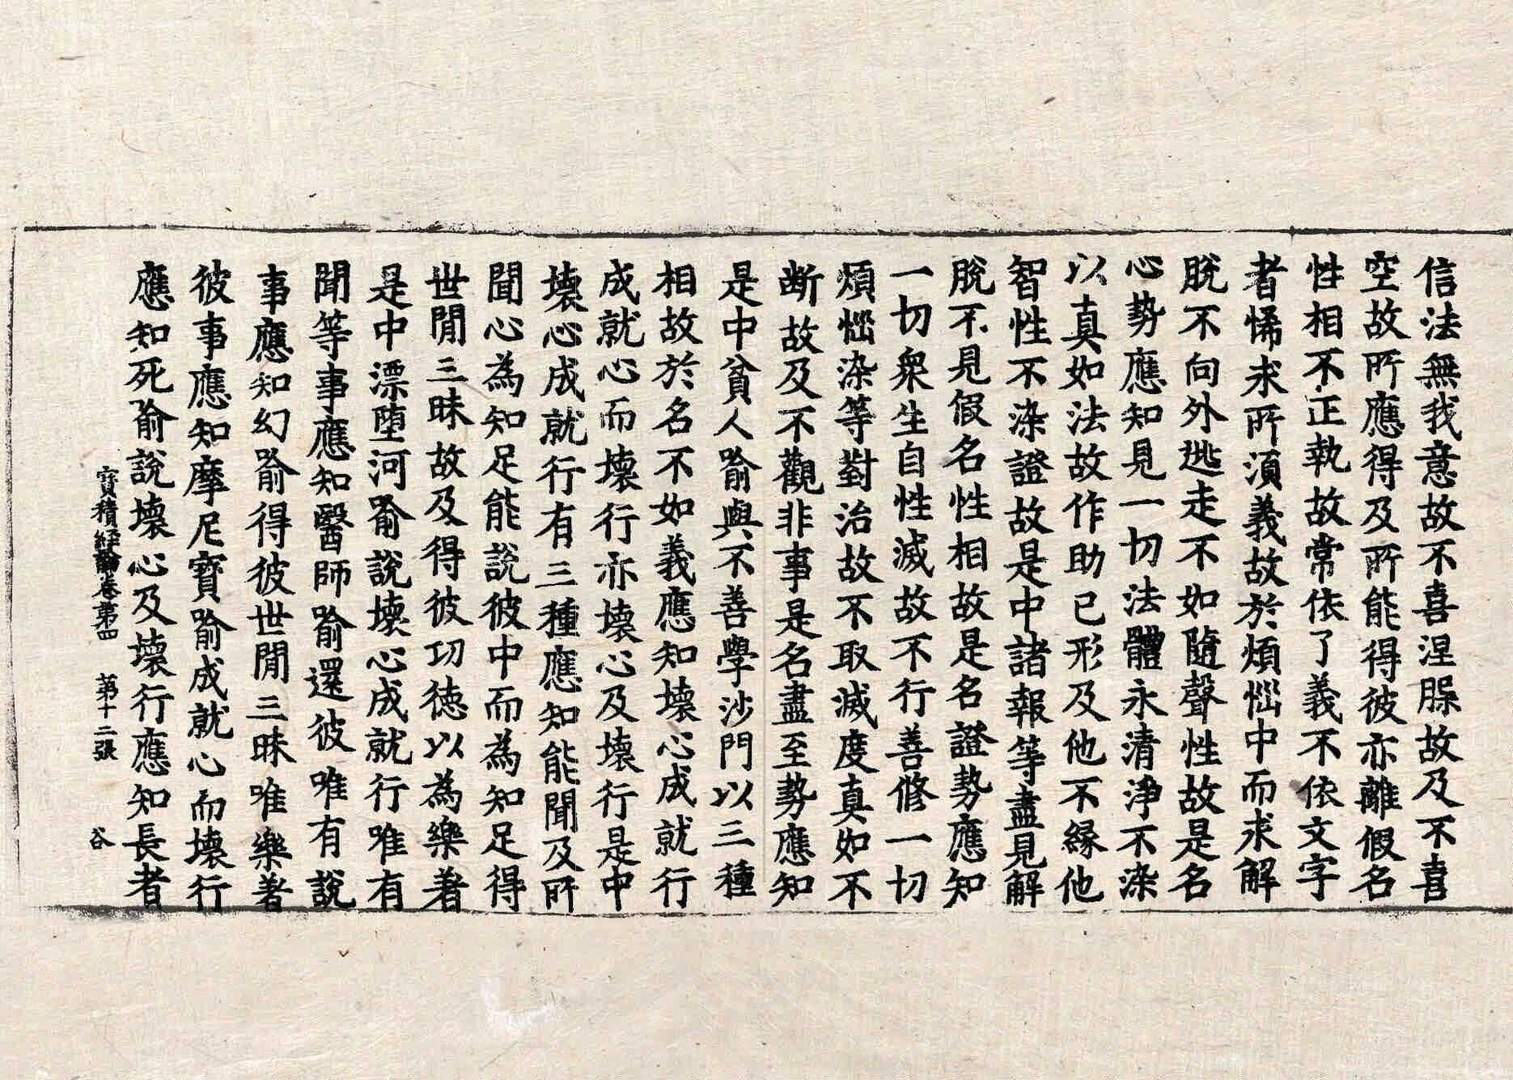 信法無我意故不喜涅槃故及不喜
空故所應得及所能得彼亦離假名
性相不正執故常依了義不依文字
者悕求所湏義故於煩惱中而求解
脫不向外逃走不如隨聲性故是名
心勢應知見一切法體永清淨不染
以真如法故作助已形及他不緣他
智性不染證故是中諸報等盡見解
脫不見假名性相故是名證勢應知
一切衆生自性滅故不行善修一切
煩惱染等對治故不取滅度真如不
断故及不觀非事是名盡至勢應知
是中貧人喻與不善學沙門以三種
相故於名不如義應知壞心成就行
成就心而壞行亦壞心及壞行是中
壞心成就行有三種應知能聞及所
聞心為知足能說彼中而為知足得
世閒三昧故及得彼功德以為樂著
是中漂墮河喻說壞心成就行唯有
聞等事應知醫師喻還彼唯有說
事應知幻喻得彼世閒三昧唯樂著
彼事應知摩尼寶喻成就心而壞行
應知死喻說壞心及壞行應知長者
寶積經論卷第四　第十二張　谷